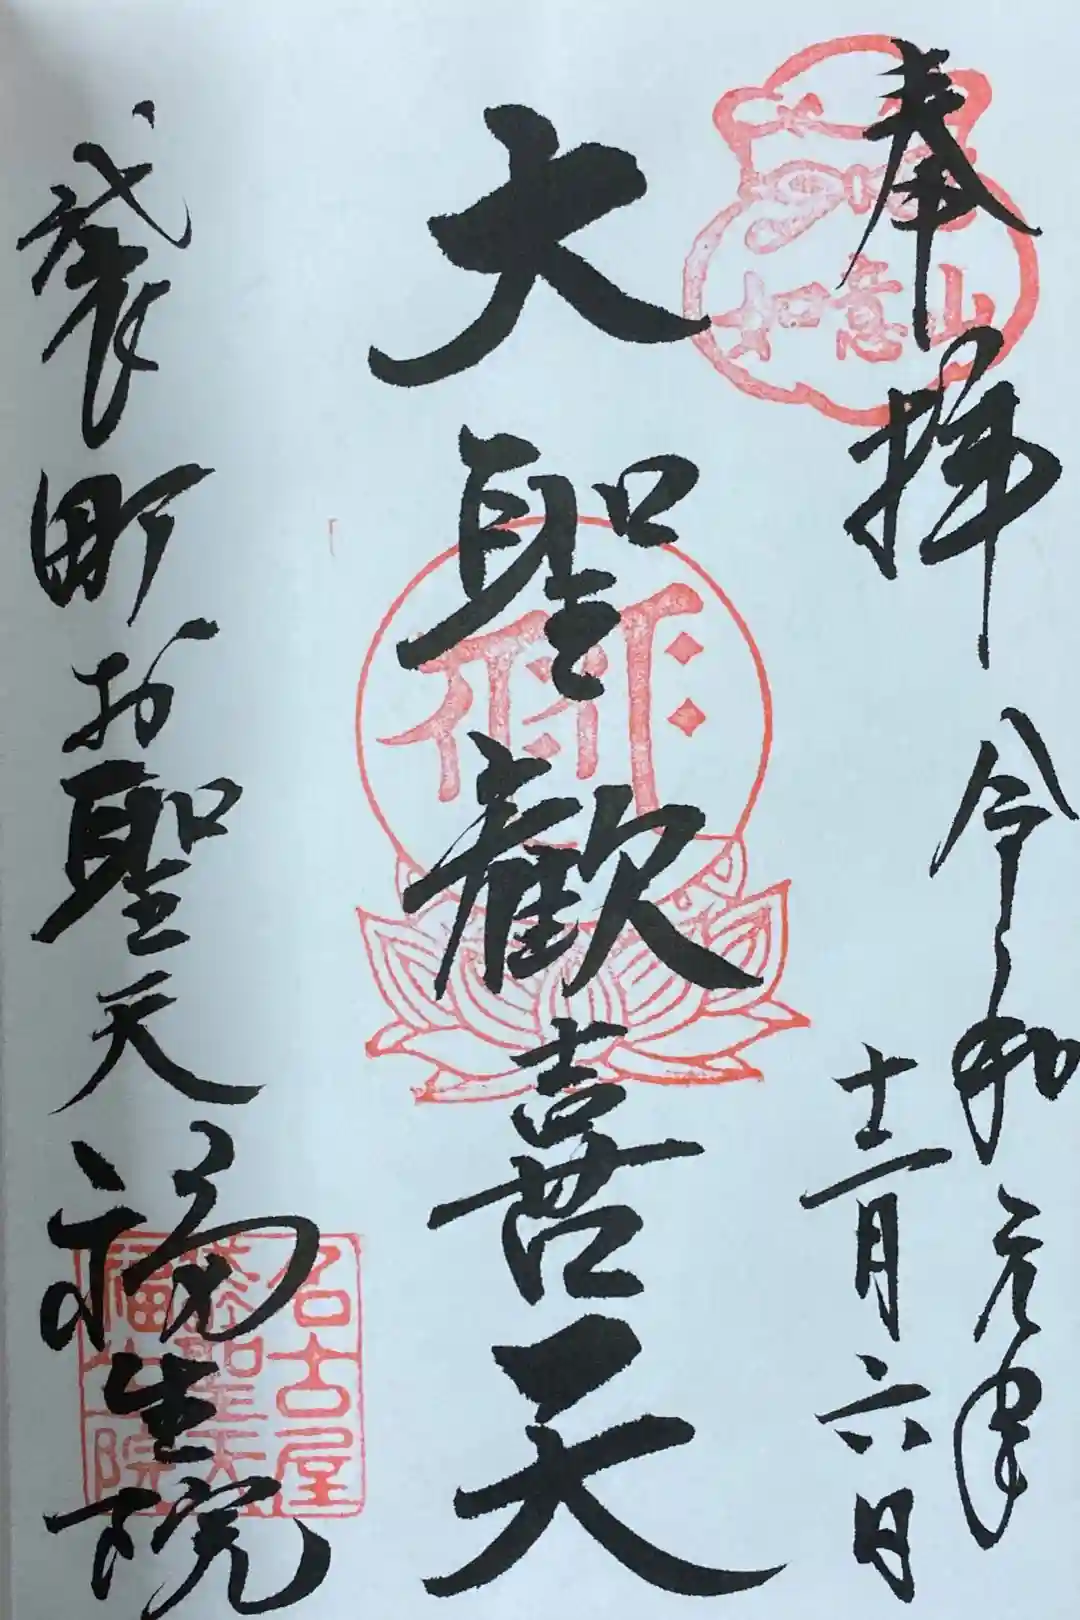 奉拝
如意山
令和元年
十二月六日
大聖歓喜天
袋町お聖天
福生院
名古屋
袋聖天
福生院